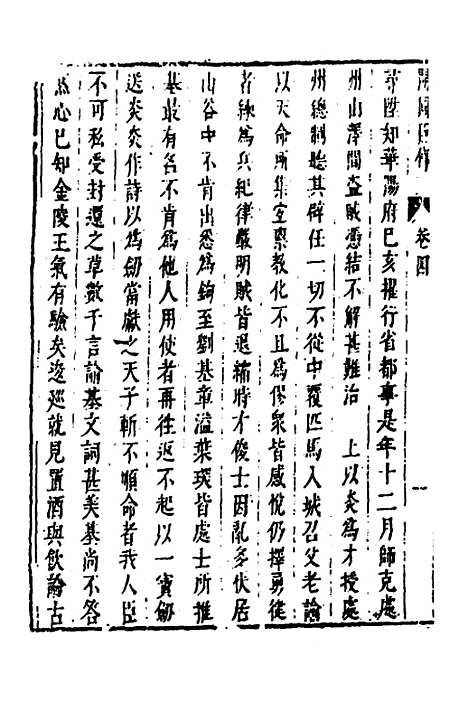 開國臣傳　卷四
尋陞知華陽府己亥擢行省都事是年十二月師克處
州山澤間盜賊憑結不解甚難治　上以炎爲才授處
州總制聽其辟任一切不從中覆匹馬入城召父老諭
以天命所集宜稟教化不且爲僇衆皆感悅仍擇勇從
者練爲兵紀律嚴明賊皆退縮時才俊士因亂多伏居
山谷中不肯出悉爲鉤至劉基章溢葉琛皆處士所推
基最有名不肯爲他人用使者再往返不起以一寶劒
送炎炎作詩以爲劒當獻之天子斬不順命者我人臣
不可私受封還之草數千言諭基文詞甚美基尚不答
然心已知金陵王氣有驗矣逡廵就見置酒與飲論古